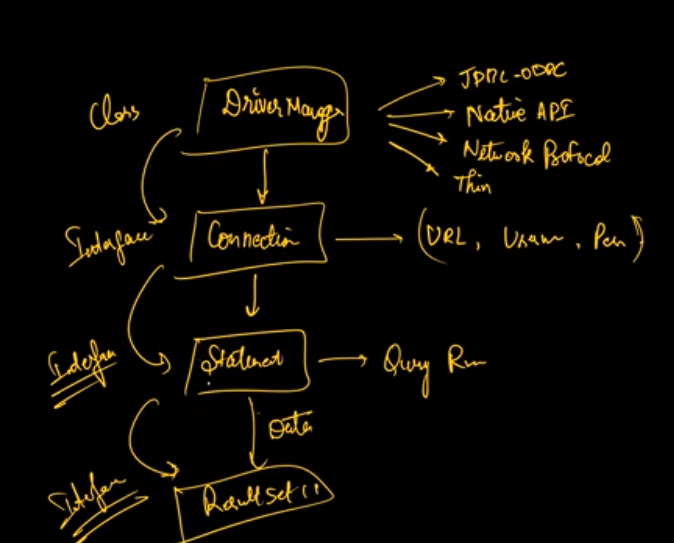 JDBC-ODBC
Class
DriverManager
Native API
Network Protocol
Thin
Interface
Connection
(URL, Usernam, Pass)
Interface
Statement
Query Run
Data
Interface
ResultSet()